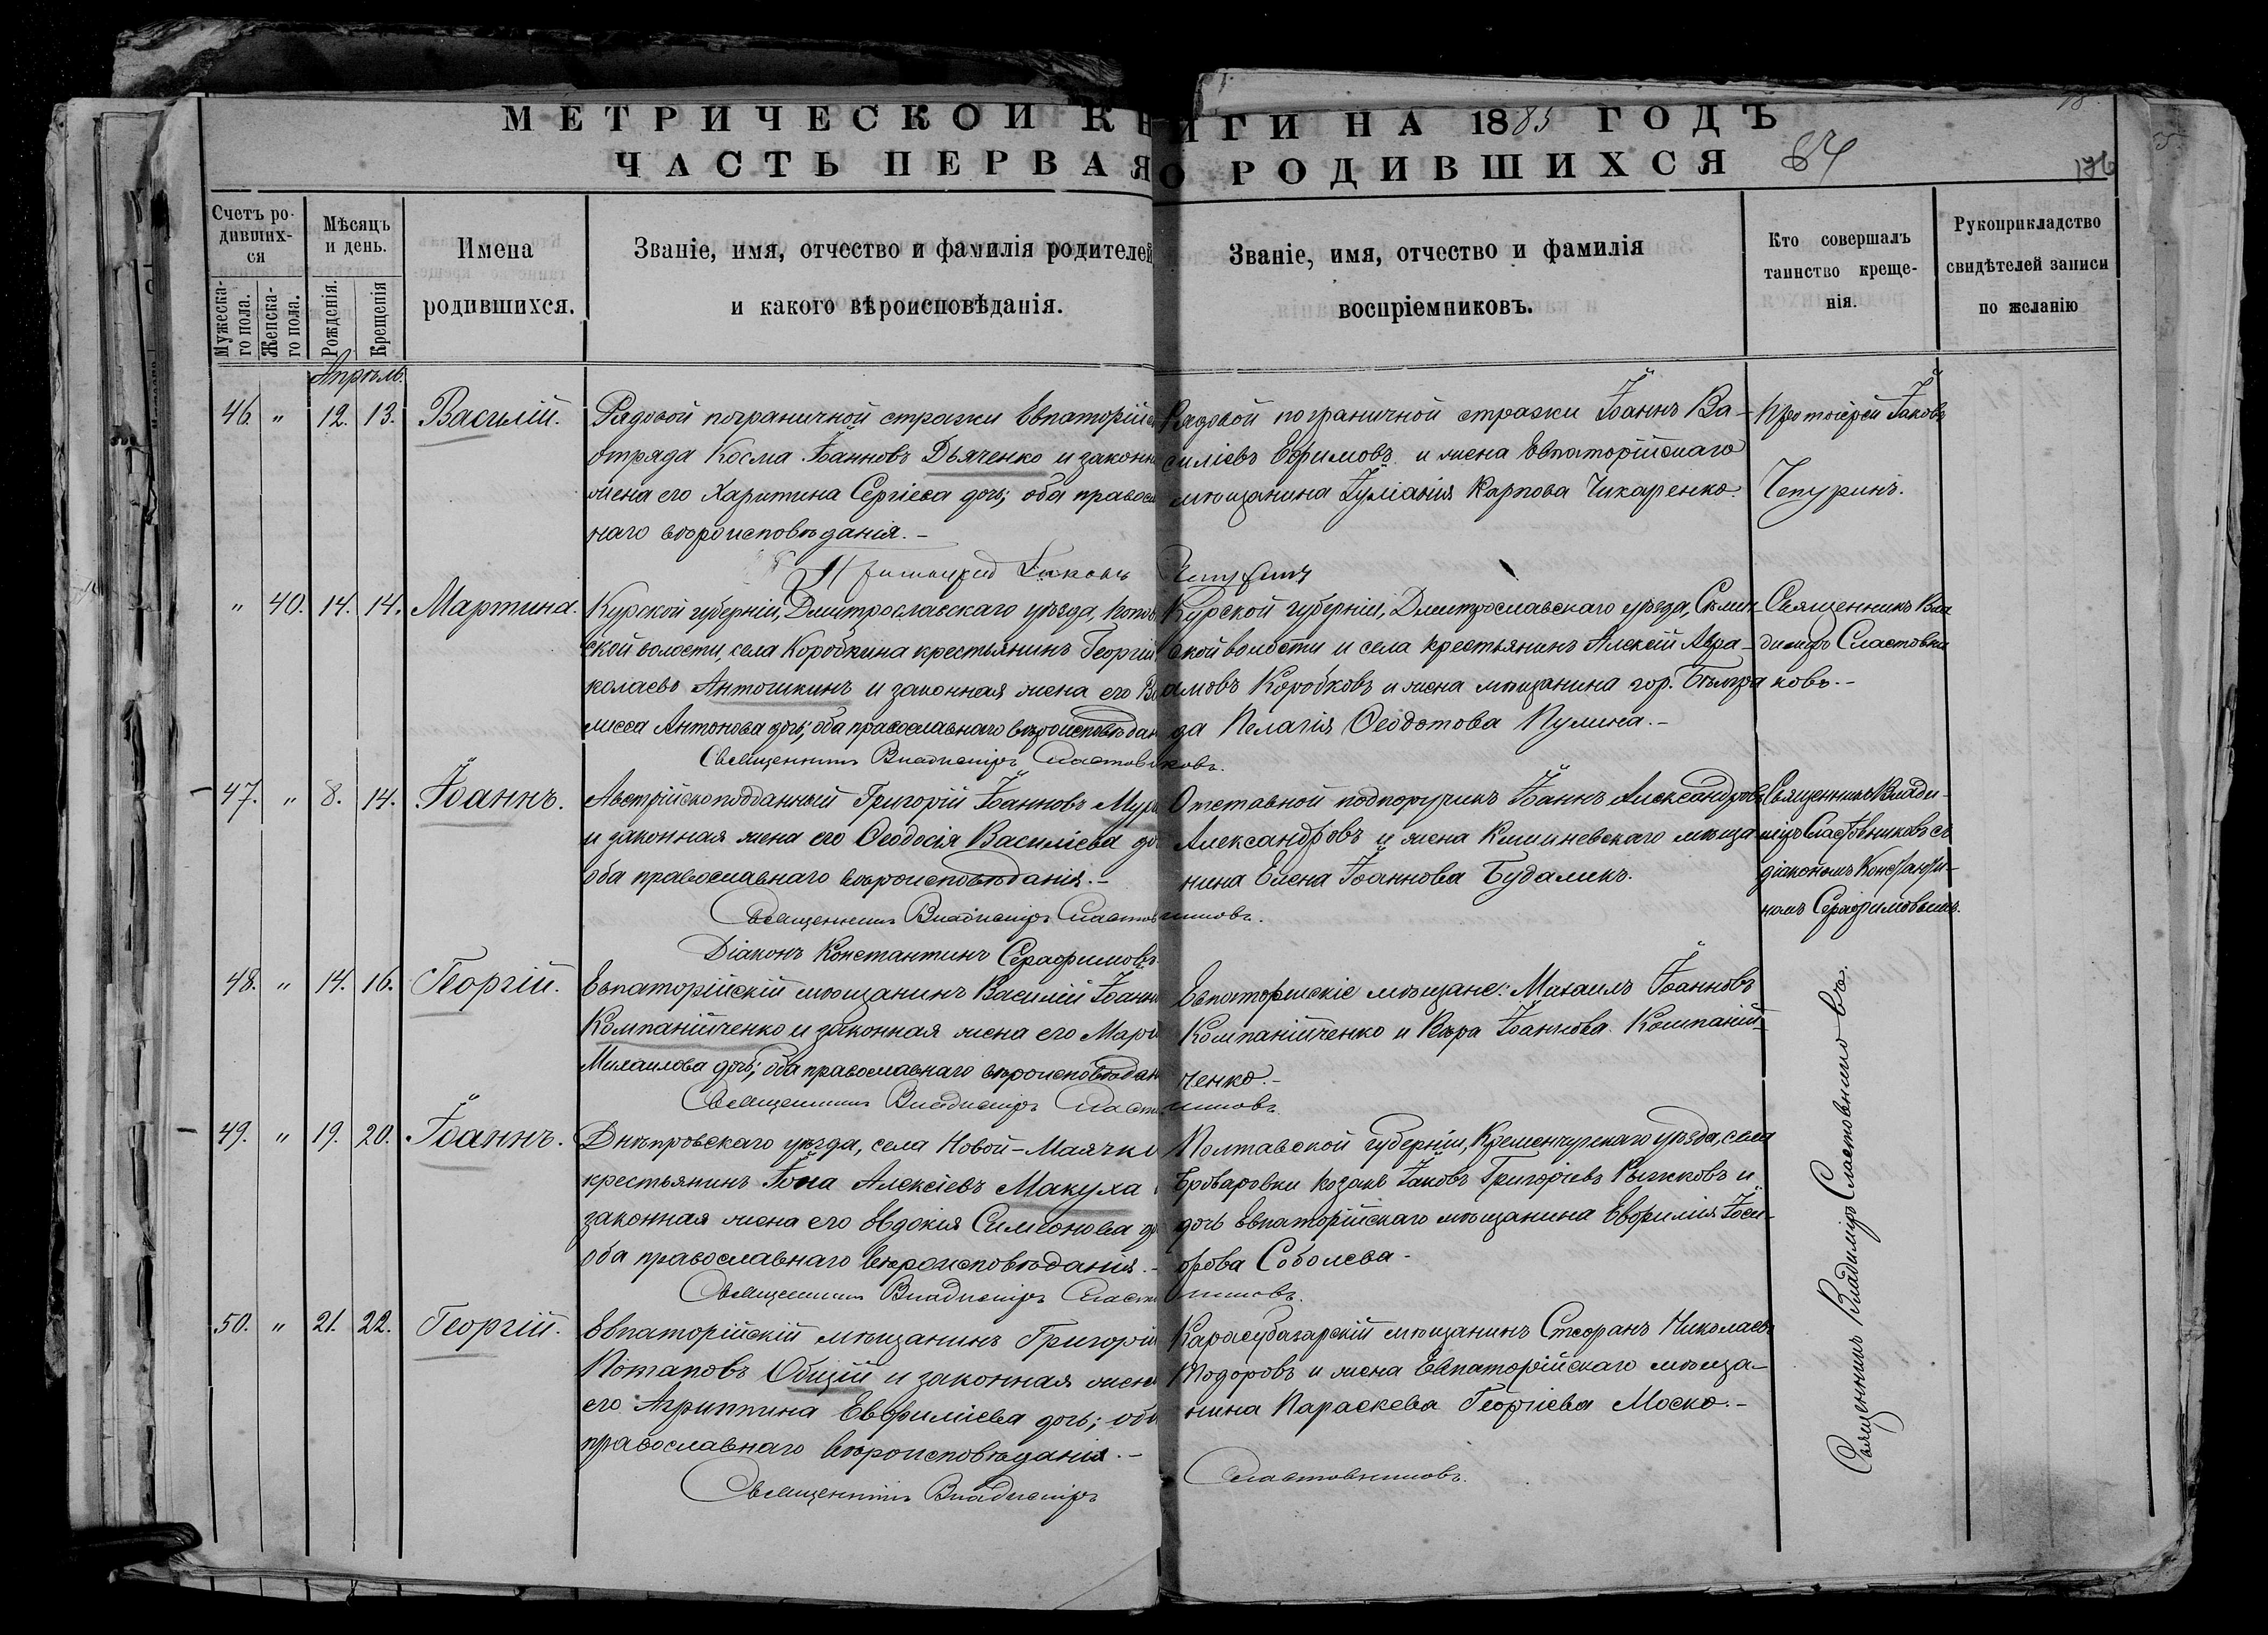 МЕТРИЧЕСКОЙ КНИГИ НА 1885 ГОДЪ
ЧАСТЬ ПЕРВАЯ О РОДИВШИХСЯ
64
176
Счетъ ро-
дивших-
ся
Мужеска-
го пола.
Женска-
го пола.
Мѣсяцъ
и день.
Рожденія.
Крещенія
Имена
родившихся.
Званіе, имя, отчество и фамилія родителей
и какого вѣроисповѣданія.
Званіе, имя, отчество и фамилія
воспріемниковъ.
Кто совершалъ
таинство креще-
нія.
Рукоприкладство
свидѣтелей записи
по желанію
Апрѣль.
46. " 12. 13. Василій.
Рядовой пограничной стражи Евпаторій
отряда Косма Іоанновъ Дьяченко и законн
жена его Харитина Сергіева дочь; оба правосл
наго вѣроисповѣданія.-
Рядовой пограничной стражи Іоаннъ Ва-
силіевъ Ефимовъ и жена Евпаторійскаго
мѣщанина Іуліанія Карпова Чикаренко.
Протоіерей Іаковъ
Чепуринъ.
Протоіерей Іаковъ Чепуринъ
" 40. 14. 14. Мартина.
Курской губерніи, Дмитрославскаго уѣзда,
ской волости, села Коробкина крестьянинъ Георгій
колаевъ Антошкинъ и законная жена его Ва
лисса Антонова дочь; оба православнаго вѣроисповѣдан
Курской губерніи, Дмитрославскаго уѣзда,
ской волости и села крестьянинъ Алексій Авра-
амовъ Коробковъ и жена мѣщанина гор. Бѣлгра
да Пелагія Ѳеодотова Пулина.-
Священникъ Вла
диміръ Сластовни
ковъ.-
Священникъ Владиміръ Сластовниковъ.
47. " 8. 14. Іоаннъ.
Австрійскоподданный Григорій Іоанновъ Мур
и законная жена его Ѳеодосія Василіева до
оба православнаго вѣроисповѣданія.-
Отставной подпоручикъ Іоаннъ Александровъ
Александровъ и жена Кишиневскаго мѣща
нина Елена Іоаннова Будаликъ.
Священникъ Влади-
міръ Сластовниковъ съ
діакономъ Константи-
номъ Серафимовымъ.
Священникъ Владиміръ Сластовниковъ.
Діаконъ Константинъ Серафимовъ
48. " 14. 16. Георгій.
Евпаторійскій мѣщанинъ Василій Іоанн
Компанійченко и законная жена его Марі
Михаилова дочь; оба православнаго вѣроисповѣдан
Евпаторійскіе мѣщане: Михаилъ Іоанновъ
Компанійченко и Вѣра Іоаннова Компаній-
ченко.-
Священникъ Владиміръ Сластовниковъ.
49. " 19. 20. Іоаннъ.
Днѣпровскаго уѣзда, села Новой-Маячки
крестьянинъ Іона Алексіевъ Макуха и
законная жена его Евдокія Симеонова до
оба православнаго вѣроисповѣданія.-
Полтавской губерніи, Кременчугскаго уѣзда, села
Броваровки козакъ Іаковъ Григоріевъ Рыжковъ и
дочь Евпаторійскаго мѣщанина Евфимія Іоси-
фова Соболева-
Священникъ Владиміръ Сластовниковъ.
50. " 21. 22. Георгій.
Евпаторійскій мѣщанинъ Григорій
Потаповъ Общій и законная жена
его Агриппина Евфиміева дочь; оба
православнаго вѣроисповѣданія.-
Карасубазарскій мѣщанинъ Стефанъ Николаевъ
Тодоровъ и жена Евпаторійскаго мѣща-
нина Параскева Георгіева Моско.-
Священникъ Владиміръ Сластовниковъ.
Священникъ Владиміръ Сластовниковъ.